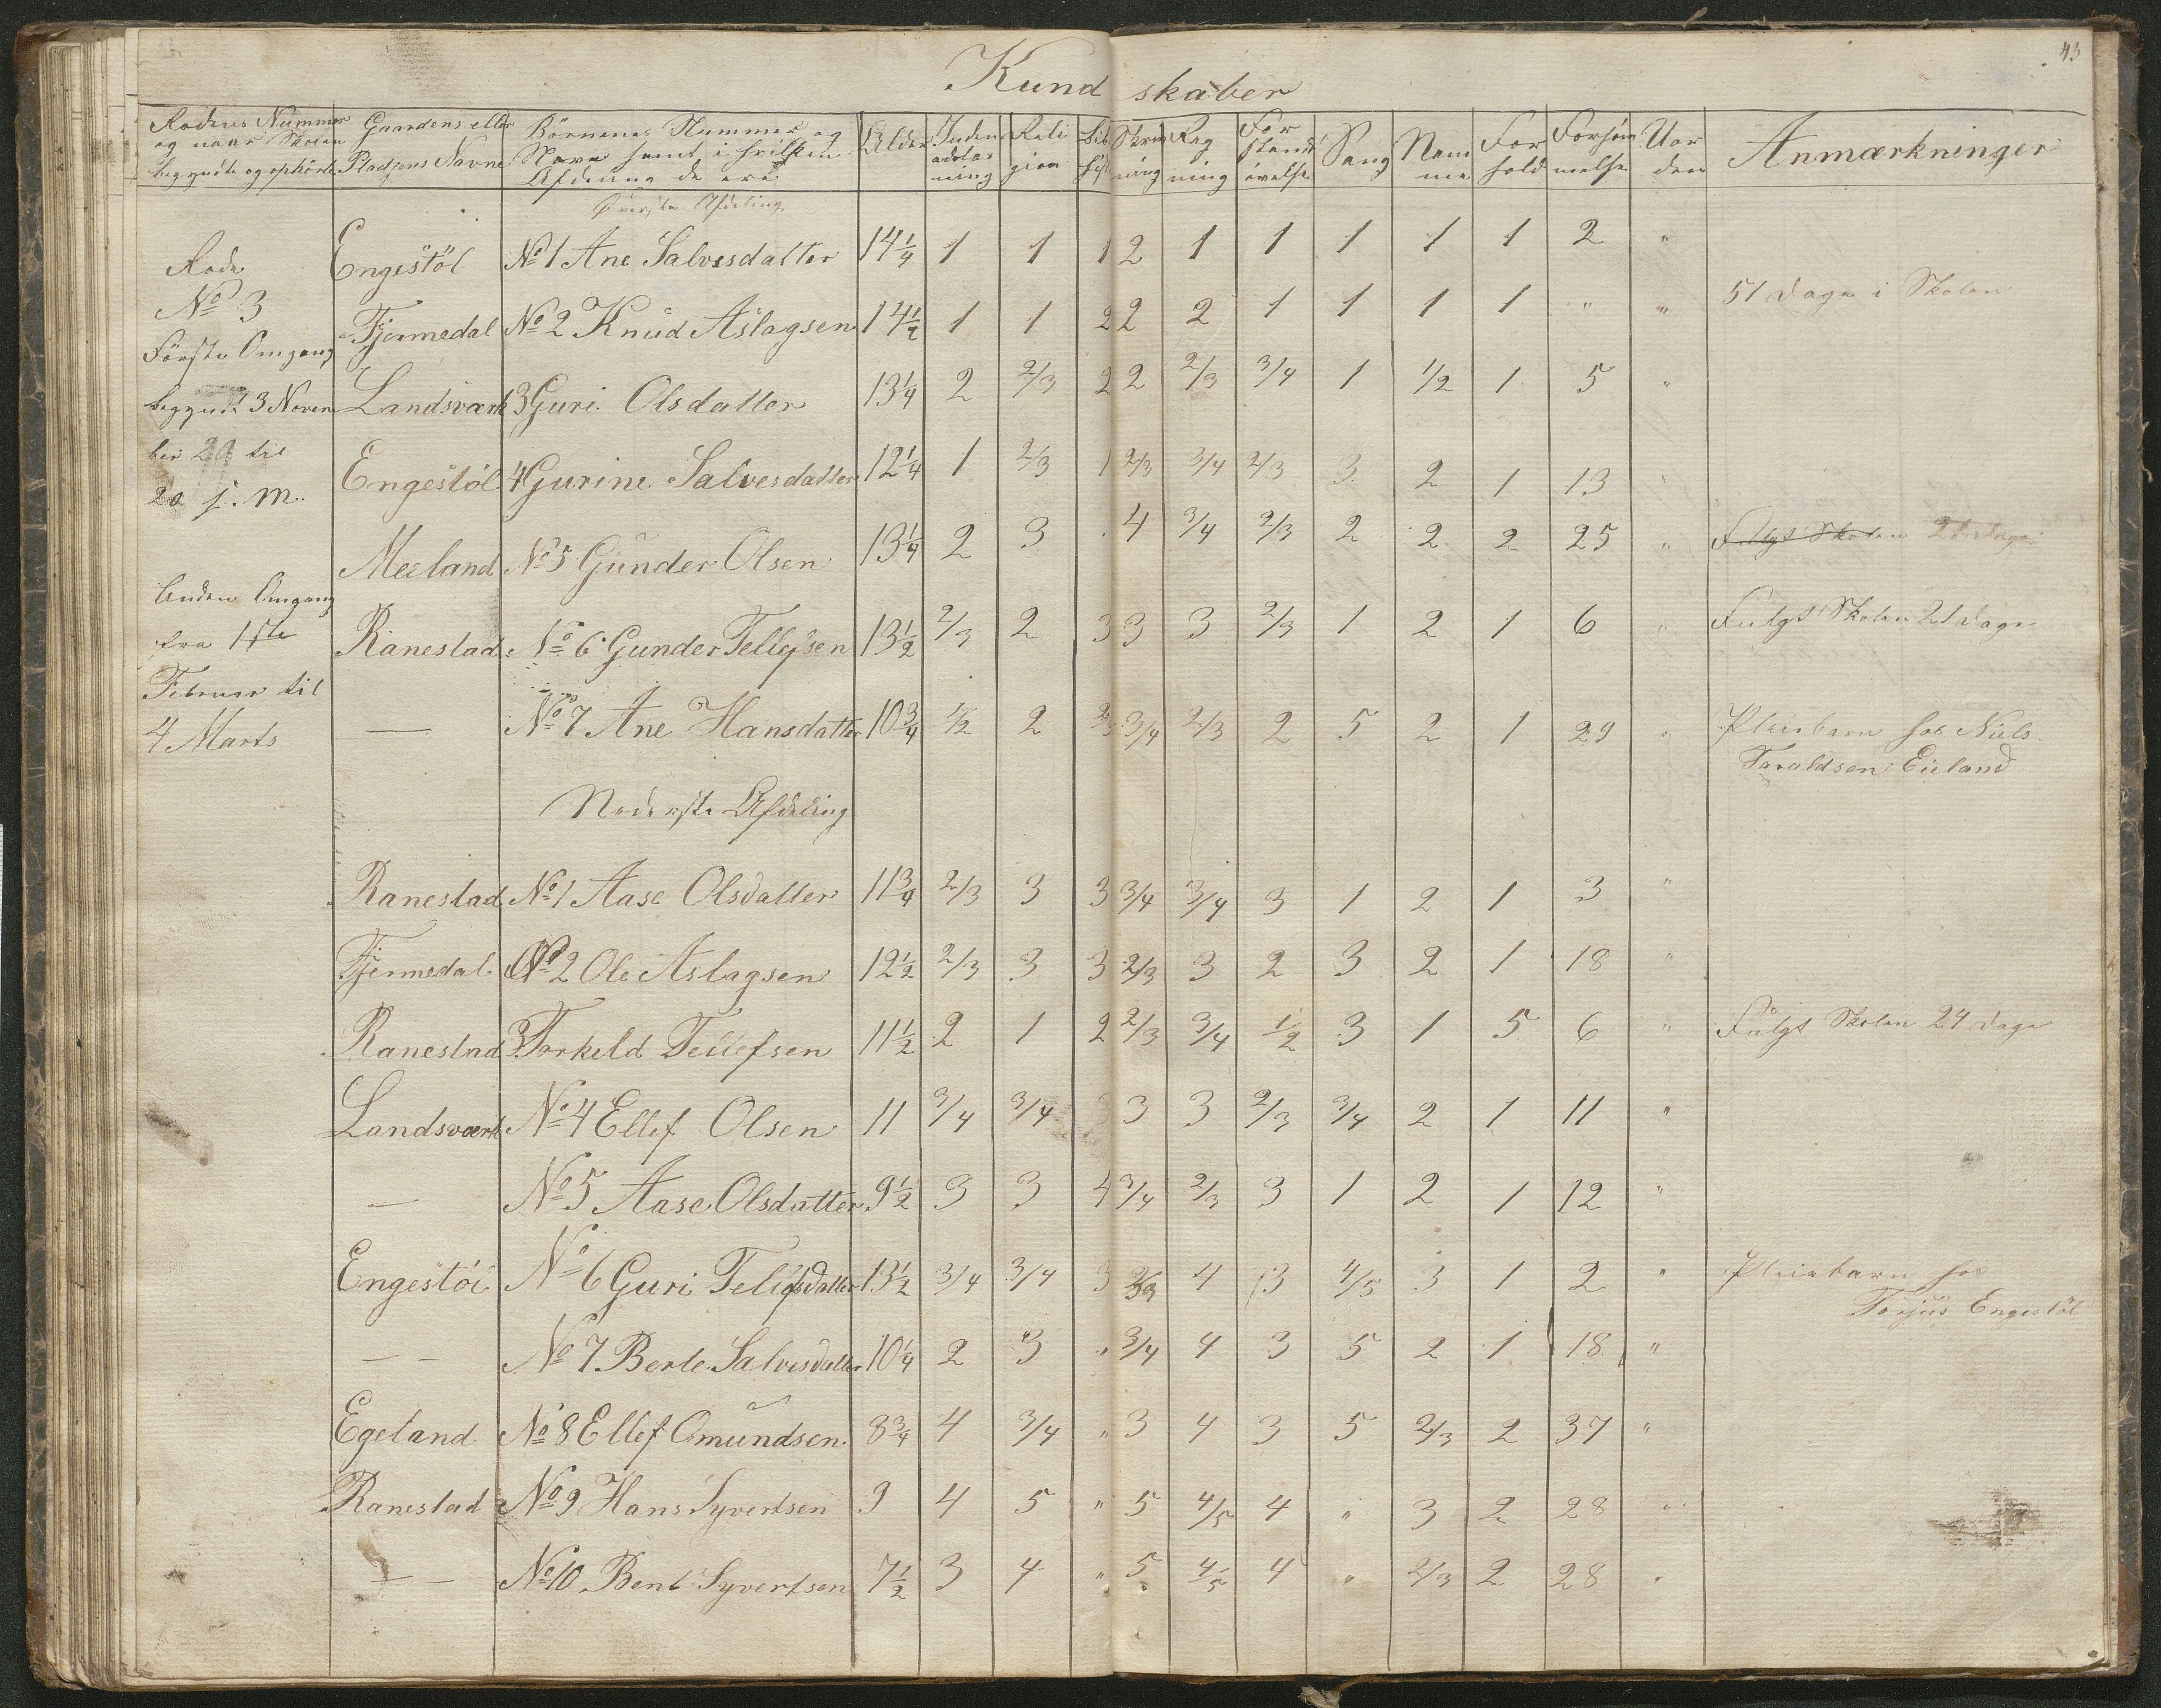 43
Kundskaber
Rodens Nummer og naar Skolen begyndte og ophörte | Gaardens eller Pladsens Navne | Börnenes Nummer og Navn samt i hvilken Afdeling de ere | Alder | Inden adslæsning | Religion | Bib. hist. | Skrivning | Regning | Forstandsövelse | Sang | Nemme | Forhold | Forsömmelse | Uorden | Anmærkninger
Överste Afdeling
Rode | Engestöl | No 1 Ane Salvesdatter | 14 1/4 | 1 | 1 | 1 | 2 | 1 | 1 | 1 | 1 | 1 | 2 | "
No 3 | Fjermedal | No 2 Knud Aslagsen | 14 1/2 | 1 | 1 | 2 | 2 | 2 | 1 | 1 | 1 | 1 | " | " | 51 Dage i Skolen
Förste Omgang
begyndt 3 Novem | Landsværk | 3 Guri Olsdatter | 13 1/4 | 2 | 2/3 | 2 | 2 | 2/3 | 3/4 | 1 | 1/2 | 1 | 5 | "
ber til | Engestöl | 4 Gurine Salvesdatter | 12 1/4 | 1 | 2/3 | 1 | 2/3 | 3/4 | 2/3 | 3 | 2 | 1 | 13 | "
20 s. m.
Meeland | No 5 Gunder Olsen | 13 1/4 | 2 | 3 | . | 4 | 3/4 | 2/3 | 2 | 2 | 2 | 25 | " | Fulgt Skolen 21 Dage
Anden Omgang
fra 1ste | Ranestad | No 6 Gunder Tellefsen | 13 1/2 | 2/3 | 2 | 3 | 3 | 3 | 2/3 | 1 | 2 | 1 | 6 | " | Fulgt Skolen 21 Dage
Februar til
4 Marts | — | No 7 Ane Hansdatter | 10 3/4 | 1/2 | 2 | 2/3 | 3/4 | 2/3 | 2 | 5 | 2 | 1 | 29 | " | Pleiebarn hos Niels
Taraldsen Eieland
Nederste Afdeling
Ranestad | No 1 Aase Olsdatter | 11 3/4 | 2/3 | 3 | 3 | 3/4 | 3/4 | 3 | 1 | 2 | 1 | 3 | "
Fjermedal | No 2 Ole Aslagsen | 12 1/2 | 2/3 | 3 | 3 | 2/3 | 3 | 2 | 3 | 2 | 1 | 18 | "
Ranestad | 3 Torkeld Tellefsen | 11 1/2 | 2 | 1 | 2 | 2/3 | 3/4 | 1/2 | 3 | 1 | 5 | 6 | " | Fulgt Skolen 24 Dage
Landsværk | No 4 Ellef Olsen | 11 | 3/4 | 3/4 | 3 | 3 | 3 | 2/3 | 3/4 | 2 | 1 | 11 | "
— | No 5 Aase Olsdatter | 9 1/2 | 3 | 3 | 4 | 3/4 | 2/3 | 3 | 1 | 2 | 1 | 12 | "
Engestöl | No 6 Guri Tellefsdatter | 13 1/2 | 3/4 | 3/4 | 3 | 2/3 | 4 | 3 | 4/5 | 3 | 1 | 2 | " | Pleiebarn hos
Torjus Engestöl
— — | No 7 Berte Salvesdatter | 10 1/4 | 2 | 3 | " | 3/4 | 4 | 3 | 5 | 2 | 1 | 18 | "
Egeland | No 8 Ellef Omundsen | 8 3/4 | 4 | 3/4 | " | 3 | 4 | 3 | 5 | 2/3 | 2 | 37 | "
Ranestad | No 9 Hans Syvertsen | 9 | 4 | 5 | " | 5 | 4/5 | 4 | " | 3 | 2 | 28 | "
— — | No 10 Bent Syvertsen | 7 1/2 | 3 | 4 | " | 5 | 4/5 | 4 | " | 2/3 | 2 | 28 | "